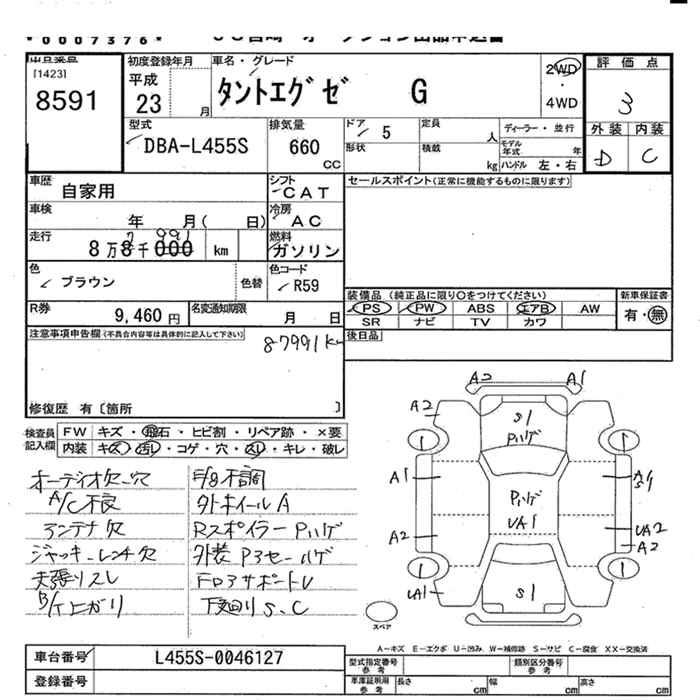 *0007376*
出品票
[1423]
8591
初度登録年月
平成
23 月
車名・グレード
タントエグゼ G
2WD
・
4WD
評価点
3
外装 内装
D C
型式
DBA-L455S
排気量
660
CC
ドア 5
形状
定員 人
積載 kg
ディーラー・並行
モデル年式 年
ハンドル 左・右
車歴
自家用
シフト
CAT
車検
年 月( 日)
冷房
AC
走行
8万8千000 km
7 991
燃料
ガソリン
色
ブラウン
色替
色コード
R59
R券
9,460 円
名変通知期限
月 日
セールスポイント(正常に機能するものに限ります)
装備品 (純正品に限り○をつけてください)
PS PW ABS エアB AW
SR ナビ TV カワ
新車保証書
有・無
後日品
注意事項申告欄(不具合内容等は具体的に記入して下さい)
87991km
修復歴 有〔箇所 〕
検査員記入欄
FW キズ・飛石・ヒビ割・リペア跡・×要
内装 キズ・汚レ・コゲ・穴・スレ・キレ・破レ
オーディオ欠、穴
A/C不良
アンテナ欠
ジャッキ、レンチ欠
天張リスレ
外ホイールA
RスポイラーPハゲ
外装P3セールハゲ
下廻りS、C
A2 A1
A2
S1
Pハゲ
A1
Pハゲ
UA1
A2
UA2
A2
UA1
S1
スペア
A-キズ E-エクボ U-凹み W-補修跡 S-サビ C-腐食 XX-交換済
車台番号 L455S-0046127
登録番号
型式指定番号
参考
類別区分番号
参考
車庫証明用
参考
長さ cm 幅 cm 高さ cm